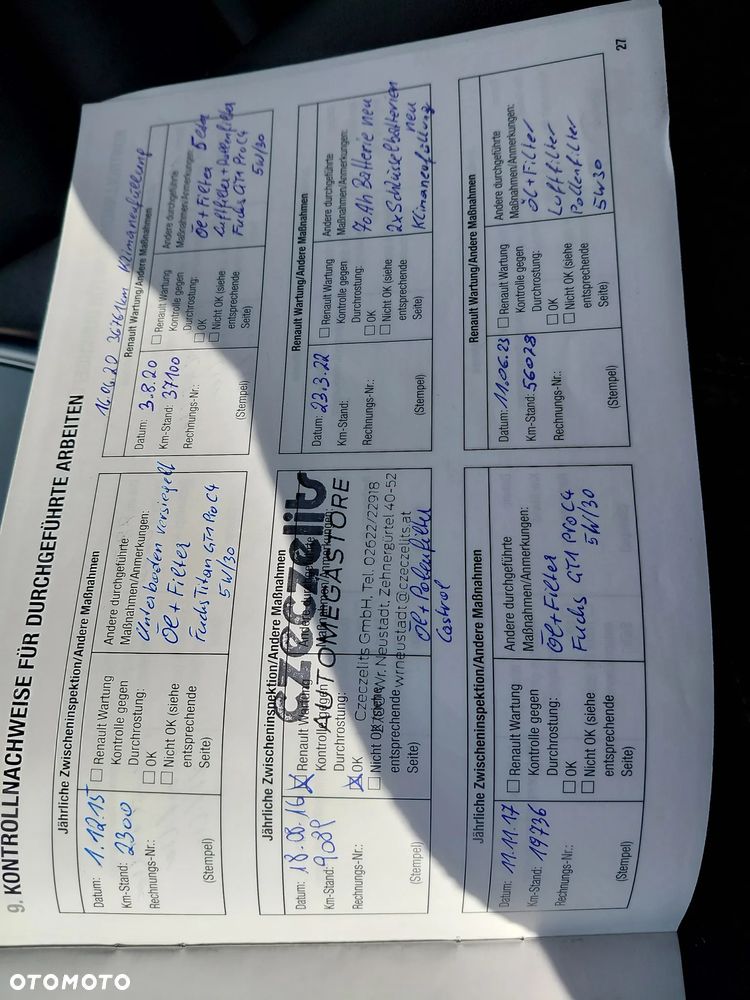 9. KONTROLLNACHWEISE FÜR DURCHGEFÜHRTE ARBEITEN
Jährliche Zwischeninspektion/Andere Maßnahmen
Datum: 1.12.15
Km-Stand: 2300
Rechnungs-Nr.:
(Stempel)
Renault Wartung
Kontrolle gegen
Durchrostung:
OK
Nicht OK (siehe
entsprechende
Seite)
Andere durchgeführte
Maßnahmen/Anmerkungen:
Unterboden versiegelt
Öl + Filter
Fuchs Titan GT1 Pro C4
5W/30
16.04.20 36761km Klimaneufüllung
Renault Wartung/Andere Maßnahmen
Datum: 3.8.20
Km-Stand: 37100
Rechnungs-Nr.:
(Stempel)
Renault Wartung
Kontrolle gegen
Durchrostung:
OK
Nicht OK (siehe
entsprechende
Seite)
Andere durchgeführte
Maßnahmen/Anmerkungen:
Öl + Filter
Luftfilter + Pollenfilter
Fuchs GT1 Pro C4
5W/30
Jährliche Zwischeninspektion/Andere Maßnahmen
Datum: 18.08.16
Km-Stand: 9089
Rechnungs-Nr.:
(Stempel)
Renault Wartung
Kontrolle gegen
Durchrostung:
OK
Nicht OK (siehe
entsprechende
Seite)
Czeczelits
AUTOMEGASTORE
Czeczelits GmbH, Tel. 02622/22918
Wr. Neustadt, Zehnergürtel 40-52
wrneustadt@czeczelits.at
Öl + Pollenfilter
Castrol
Renault Wartung/Andere Maßnahmen
Datum: 23.3.22
Km-Stand:
Rechnungs-Nr.:
(Stempel)
Renault Wartung
Kontrolle gegen
Durchrostung:
OK
Nicht OK (siehe
entsprechende
Seite)
Andere durchgeführte
Maßnahmen/Anmerkungen:
70Ah Batterie neu
2x Schlüsselbatterien
neu
Klimaneufüllung
Jährliche Zwischeninspektion/Andere Maßnahmen
Datum: 11.11.17
Km-Stand: 19736
Rechnungs-Nr.:
(Stempel)
Renault Wartung
Kontrolle gegen
Durchrostung:
OK
Nicht OK (siehe
entsprechende
Seite)
Andere durchgeführte
Maßnahmen/Anmerkungen:
Öl + Filter
Fuchs GT1 Pro C4
5W/30
Renault Wartung/Andere Maßnahmen
Datum: 11.06.23
Km-Stand: 56028
Rechnungs-Nr.:
(Stempel)
Renault Wartung
Kontrolle gegen
Durchrostung:
OK
Nicht OK (siehe
entsprechende
Seite)
Andere durchgeführte
Maßnahmen/Anmerkungen:
Öl + Filter
Luftfilter
Pollenfilter
5W30
27
OTOMOTO